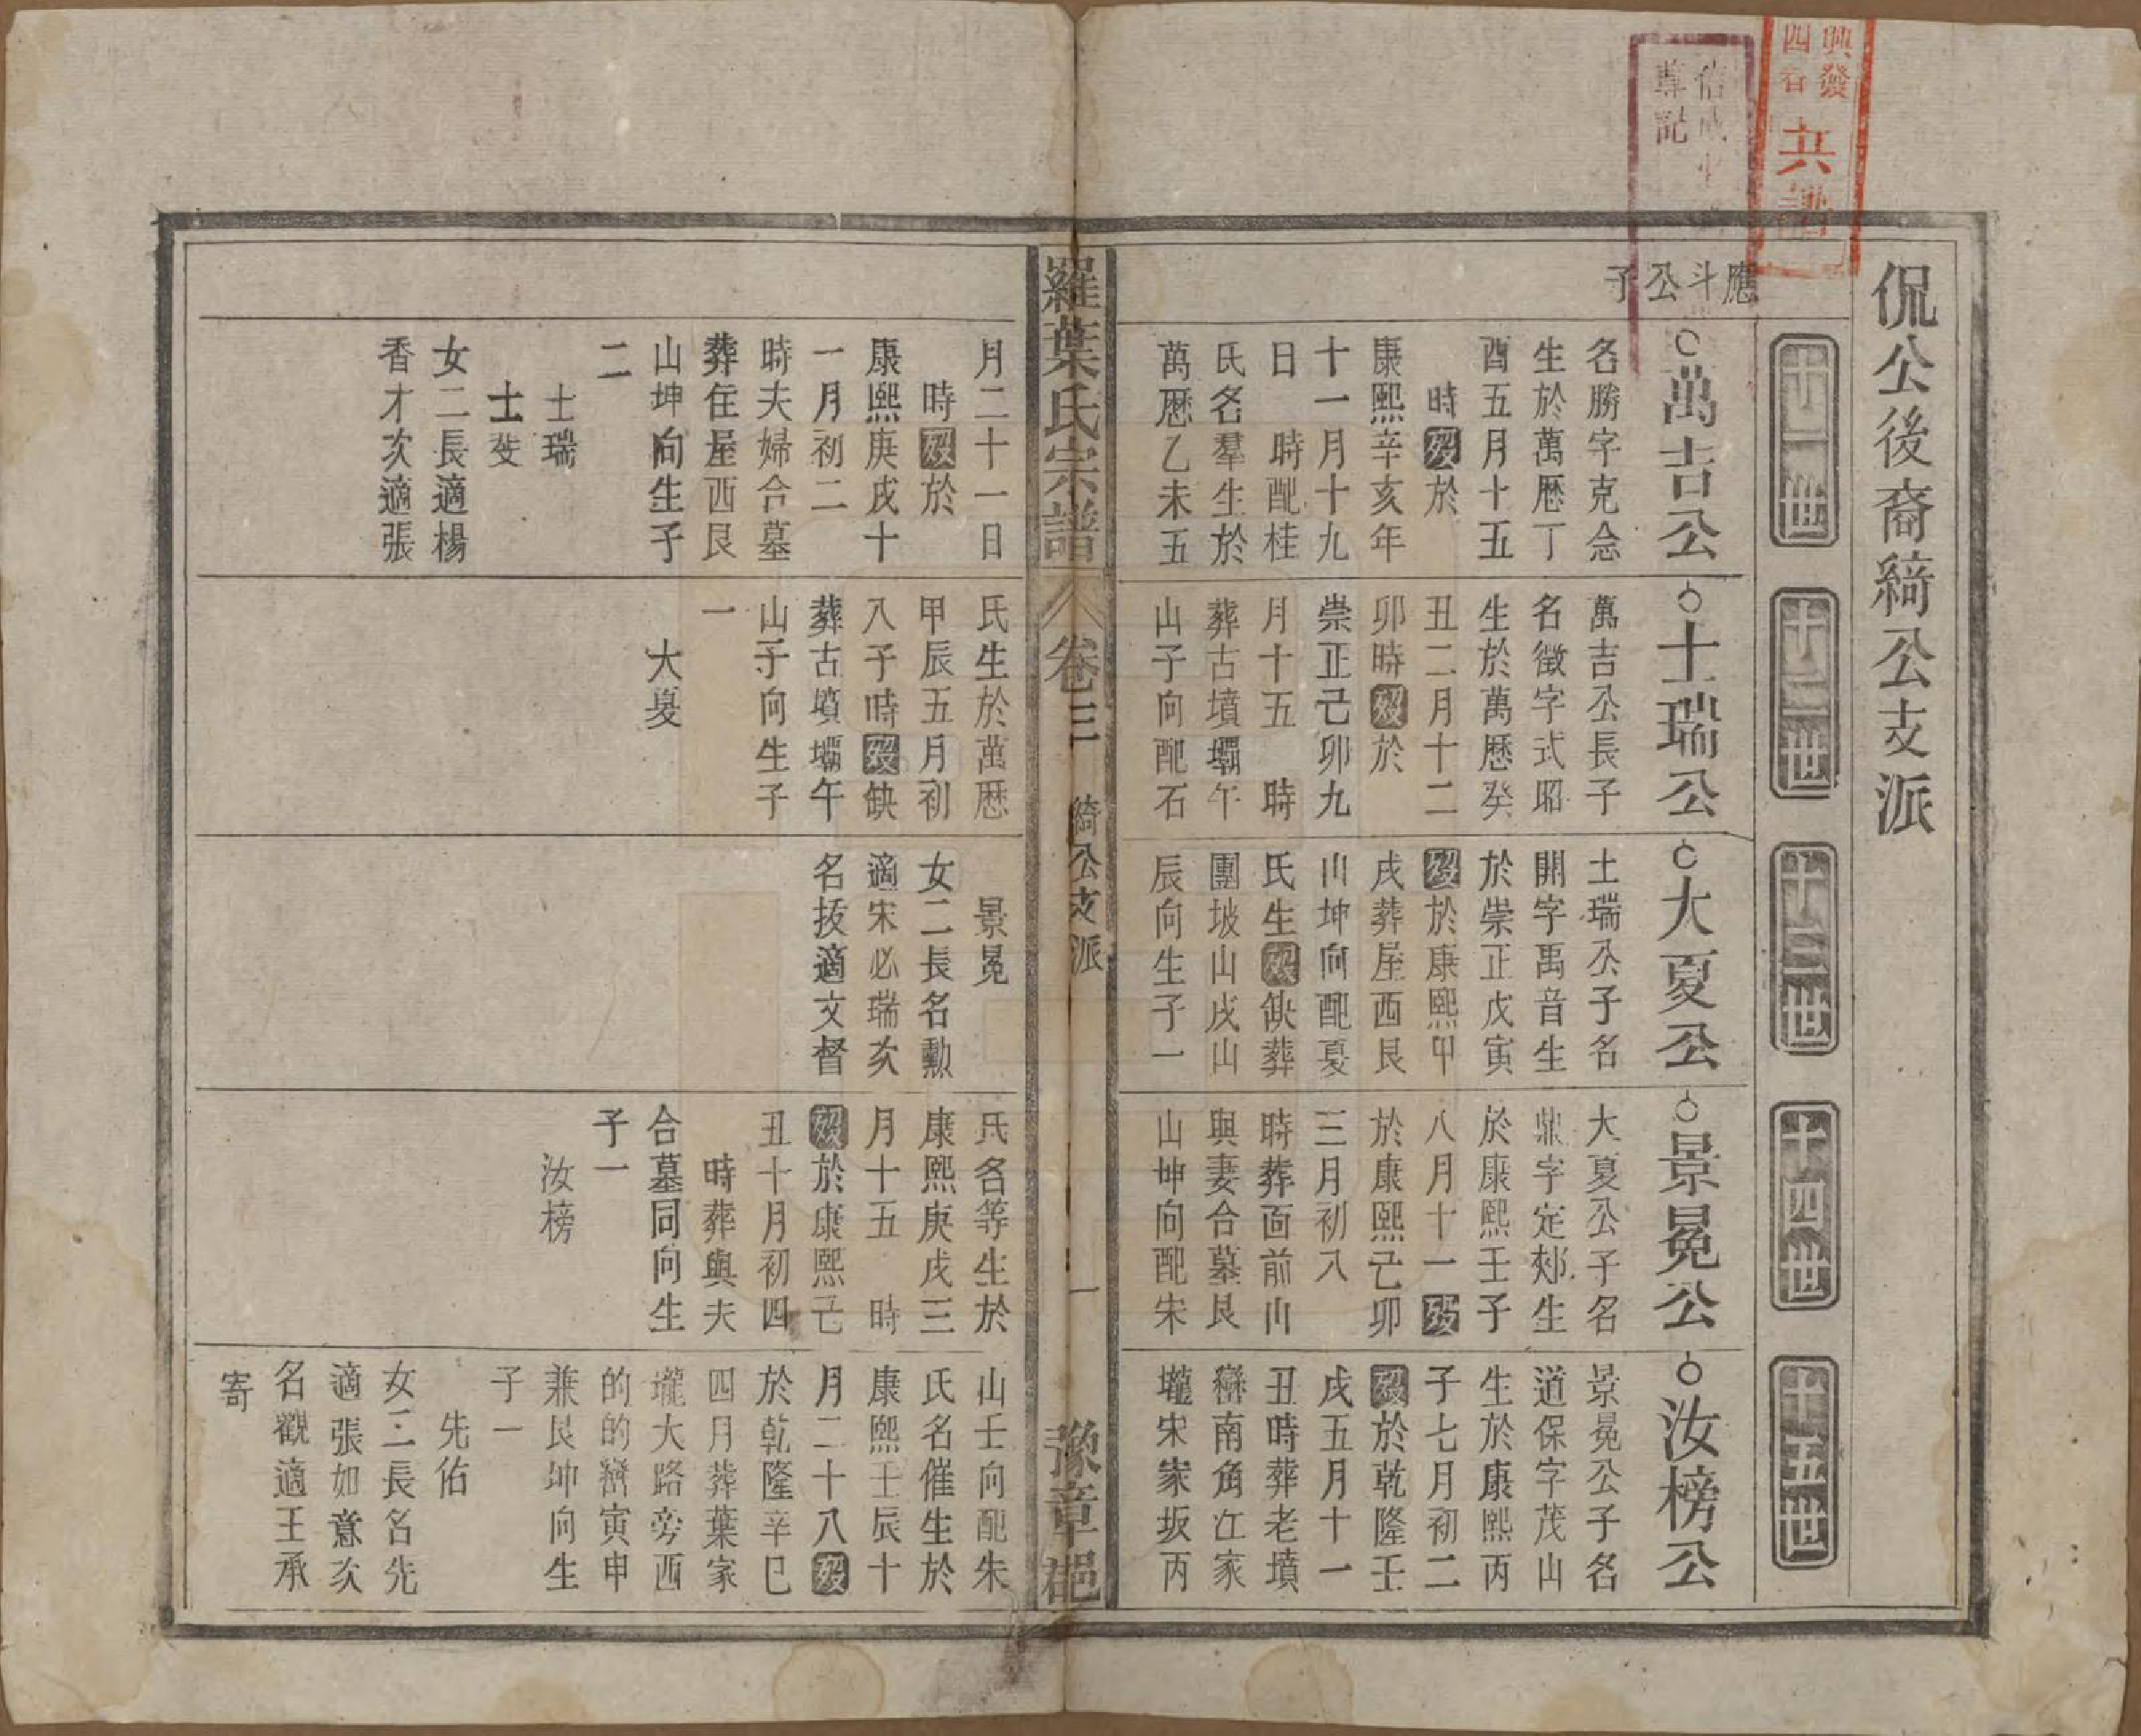 侃公後裔綺公支派
十一世
十二世
十三世
十四世
十五世
應斗公子
○萬吉公
名勝字克念
生於萬歷丁
酉五月十五
時歿於
康熙辛亥年
十一月十九
日 時配桂
氏名羣生於
萬歷乙未五
月二十一日
時歿於
康熙庚戌十
一月初二
時夫婦合墓
葬住屋西艮
山坤向生子
二
士瑞
士
女二長適楊
香才次適張
○士瑞公
萬吉公長子
名徵字式昭
生於萬歷癸
丑二月十二
卯時歿於
崇正己卯九
月十五 時
葬古墳壩午
山子向配石
氏生於萬歷
甲辰五月初
八子時歿缺
葬古墳壩午
山子向生子
一
大夏
○大夏公
士瑞公子名
開字禹音生
於崇正戊寅
歿於康熙甲
戌葬屋西艮
山坤向配夏
氏生歿缺葬
團坡山戌山
辰向生子一
景冕
女二長名勳
適宋必瑞次
名抜適文督
○景冕公
大夏公子名
鼎字定郟生
於康熙壬子
八月十一歿
於康熙己卯
三月初八
時葬面前山
與妻合墓艮
山坤向配宋
氏名等生於
康熙庚戌三
月十五 時
歿於康熙己
丑十月初四
時葬與夫
合墓同向生
子一
汝榜
○汝榜公
景冕公子名
道保字茂山
生於康熙丙
子七月初二
歿於乾隆壬
戌五月十一
丑時葬老墳
巒南角江家
壠宋家坂丙
山壬向配朱
氏名催生於
康熙壬辰十
月二十八歿
於乾隆辛巳
四月葬葉家
壠大路旁西
的的巒寅申
兼艮坤向生
子一
先佑
女二長名先
適張如意次
名觀適王承
寄
羅葉氏宗譜
卷三
綺公支派
一
豫章邑
興發
四
共譜
信成
尊記